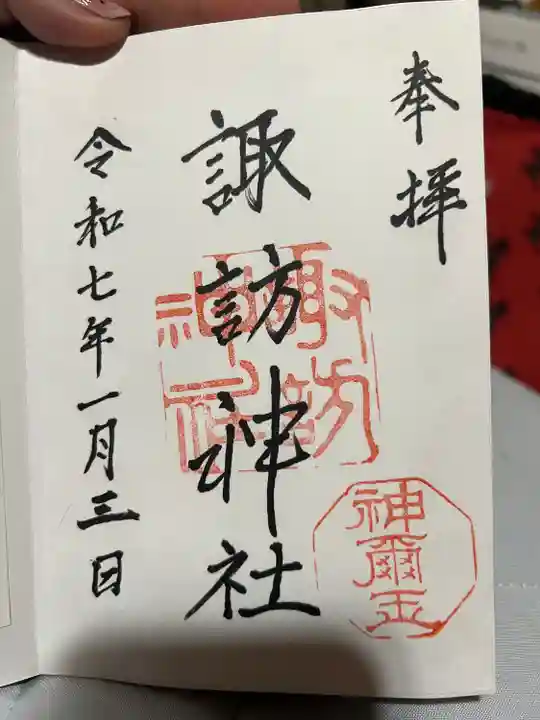 奉拝
諏訪神社
令和七年一月三日
諏訪
神社
神爾玉